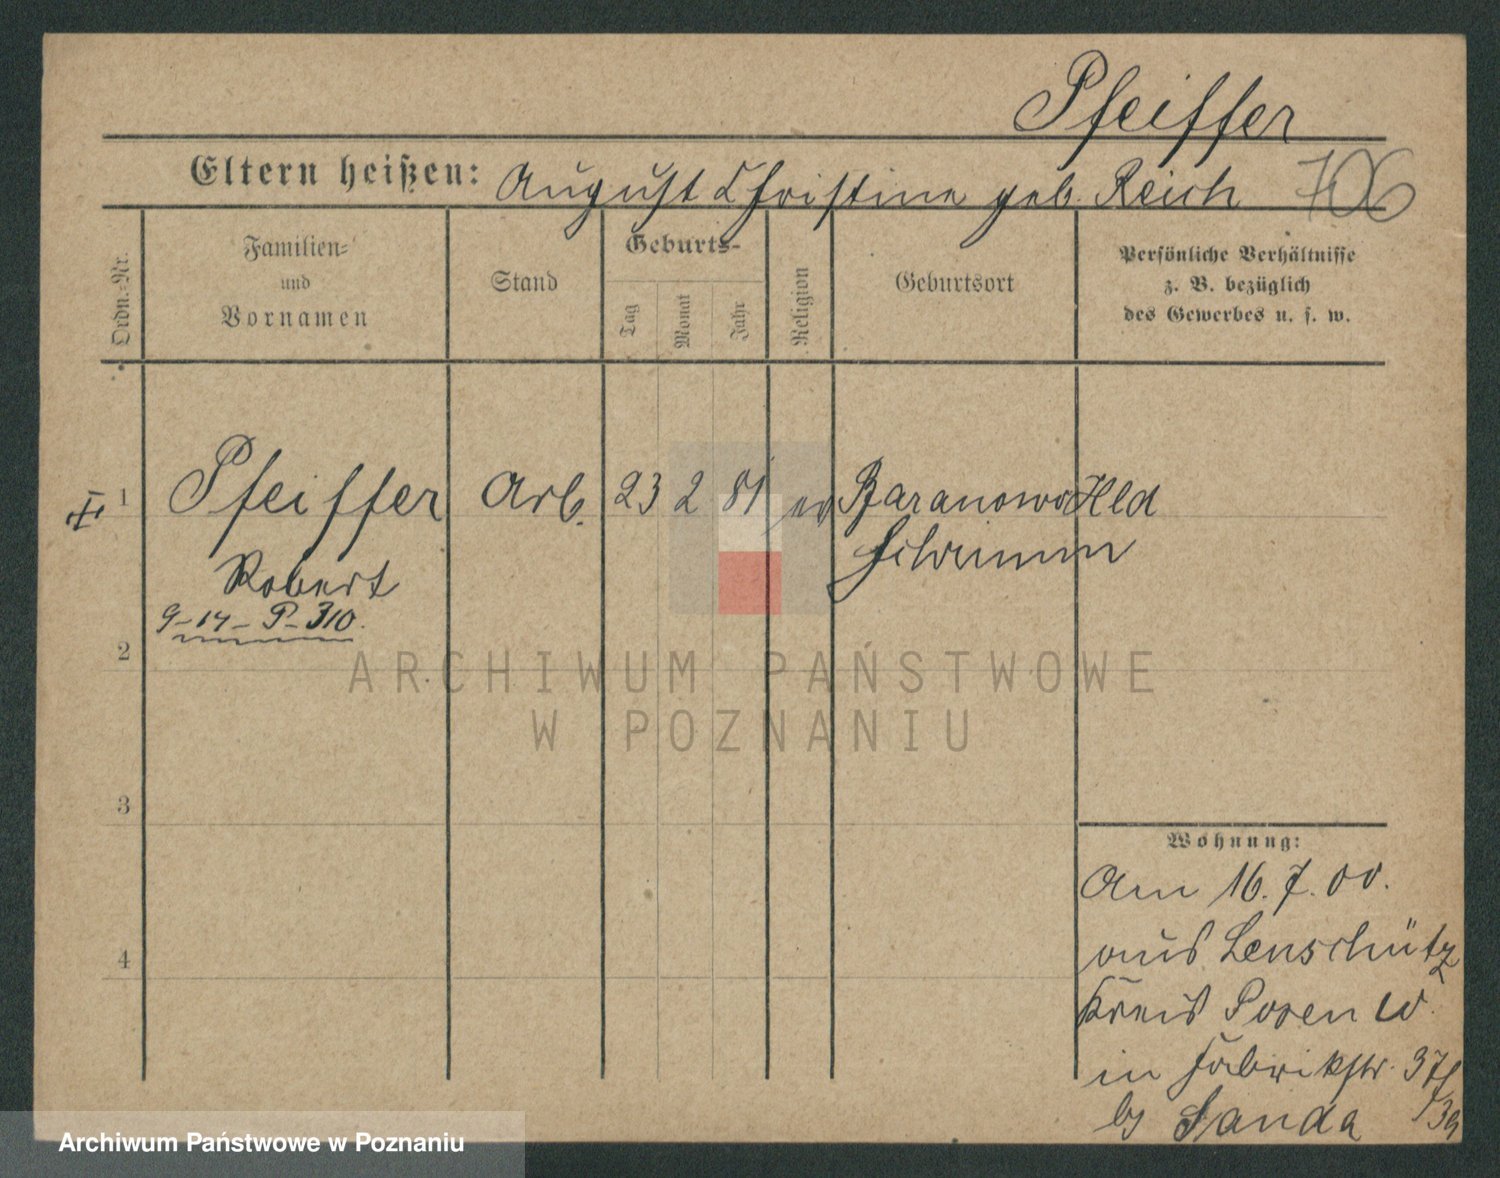 Pfeiffer
Eltern heißen: August Christine geb. Reich 706
Ordn.-Nr.
Familien-
und
Vornamen
Stand
Geburts-
Tag
Monat
Jahr
Religion
Geburtsort
Persönliche Verhältnisse
z. B. bezüglich
des Gewerbes u. s. w.
1 Pfeiffer Arb. 23 2 81 ev Baranowo Hld
Schrimm
Robert
9-14-P-310.
2
ARCHIWUM PAŃSTWOWE
W POZNANIU
3
Wohnung:
Am 16.7.00.
aus Lenschütz
4
Kreis Posen W.
in Fabrikstr. 37/
39
by Sanda
Archiwum Państwowe w Poznaniu